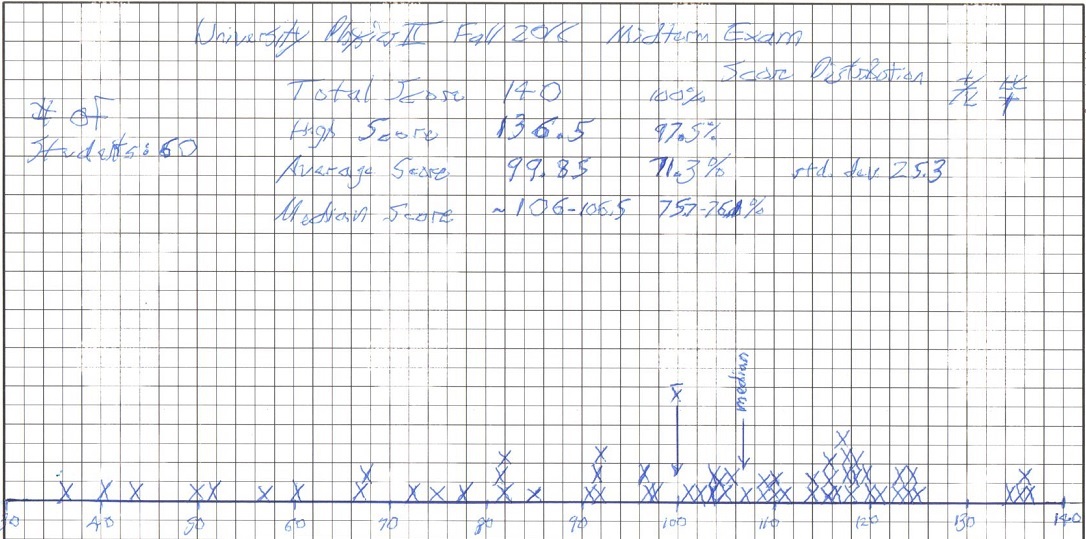 University Physics II Fall 2016 Midterm Exam
Score Distribution
Total Score 140 100%
# of
Students: 60
High Score 136.5 97.5%
Average Score 99.85 71.3% std. dev 25.3
Median Score ~106-106.5 757-761%
x̄
median
30 40 50 60 70 80 90 100 110 120 130 140